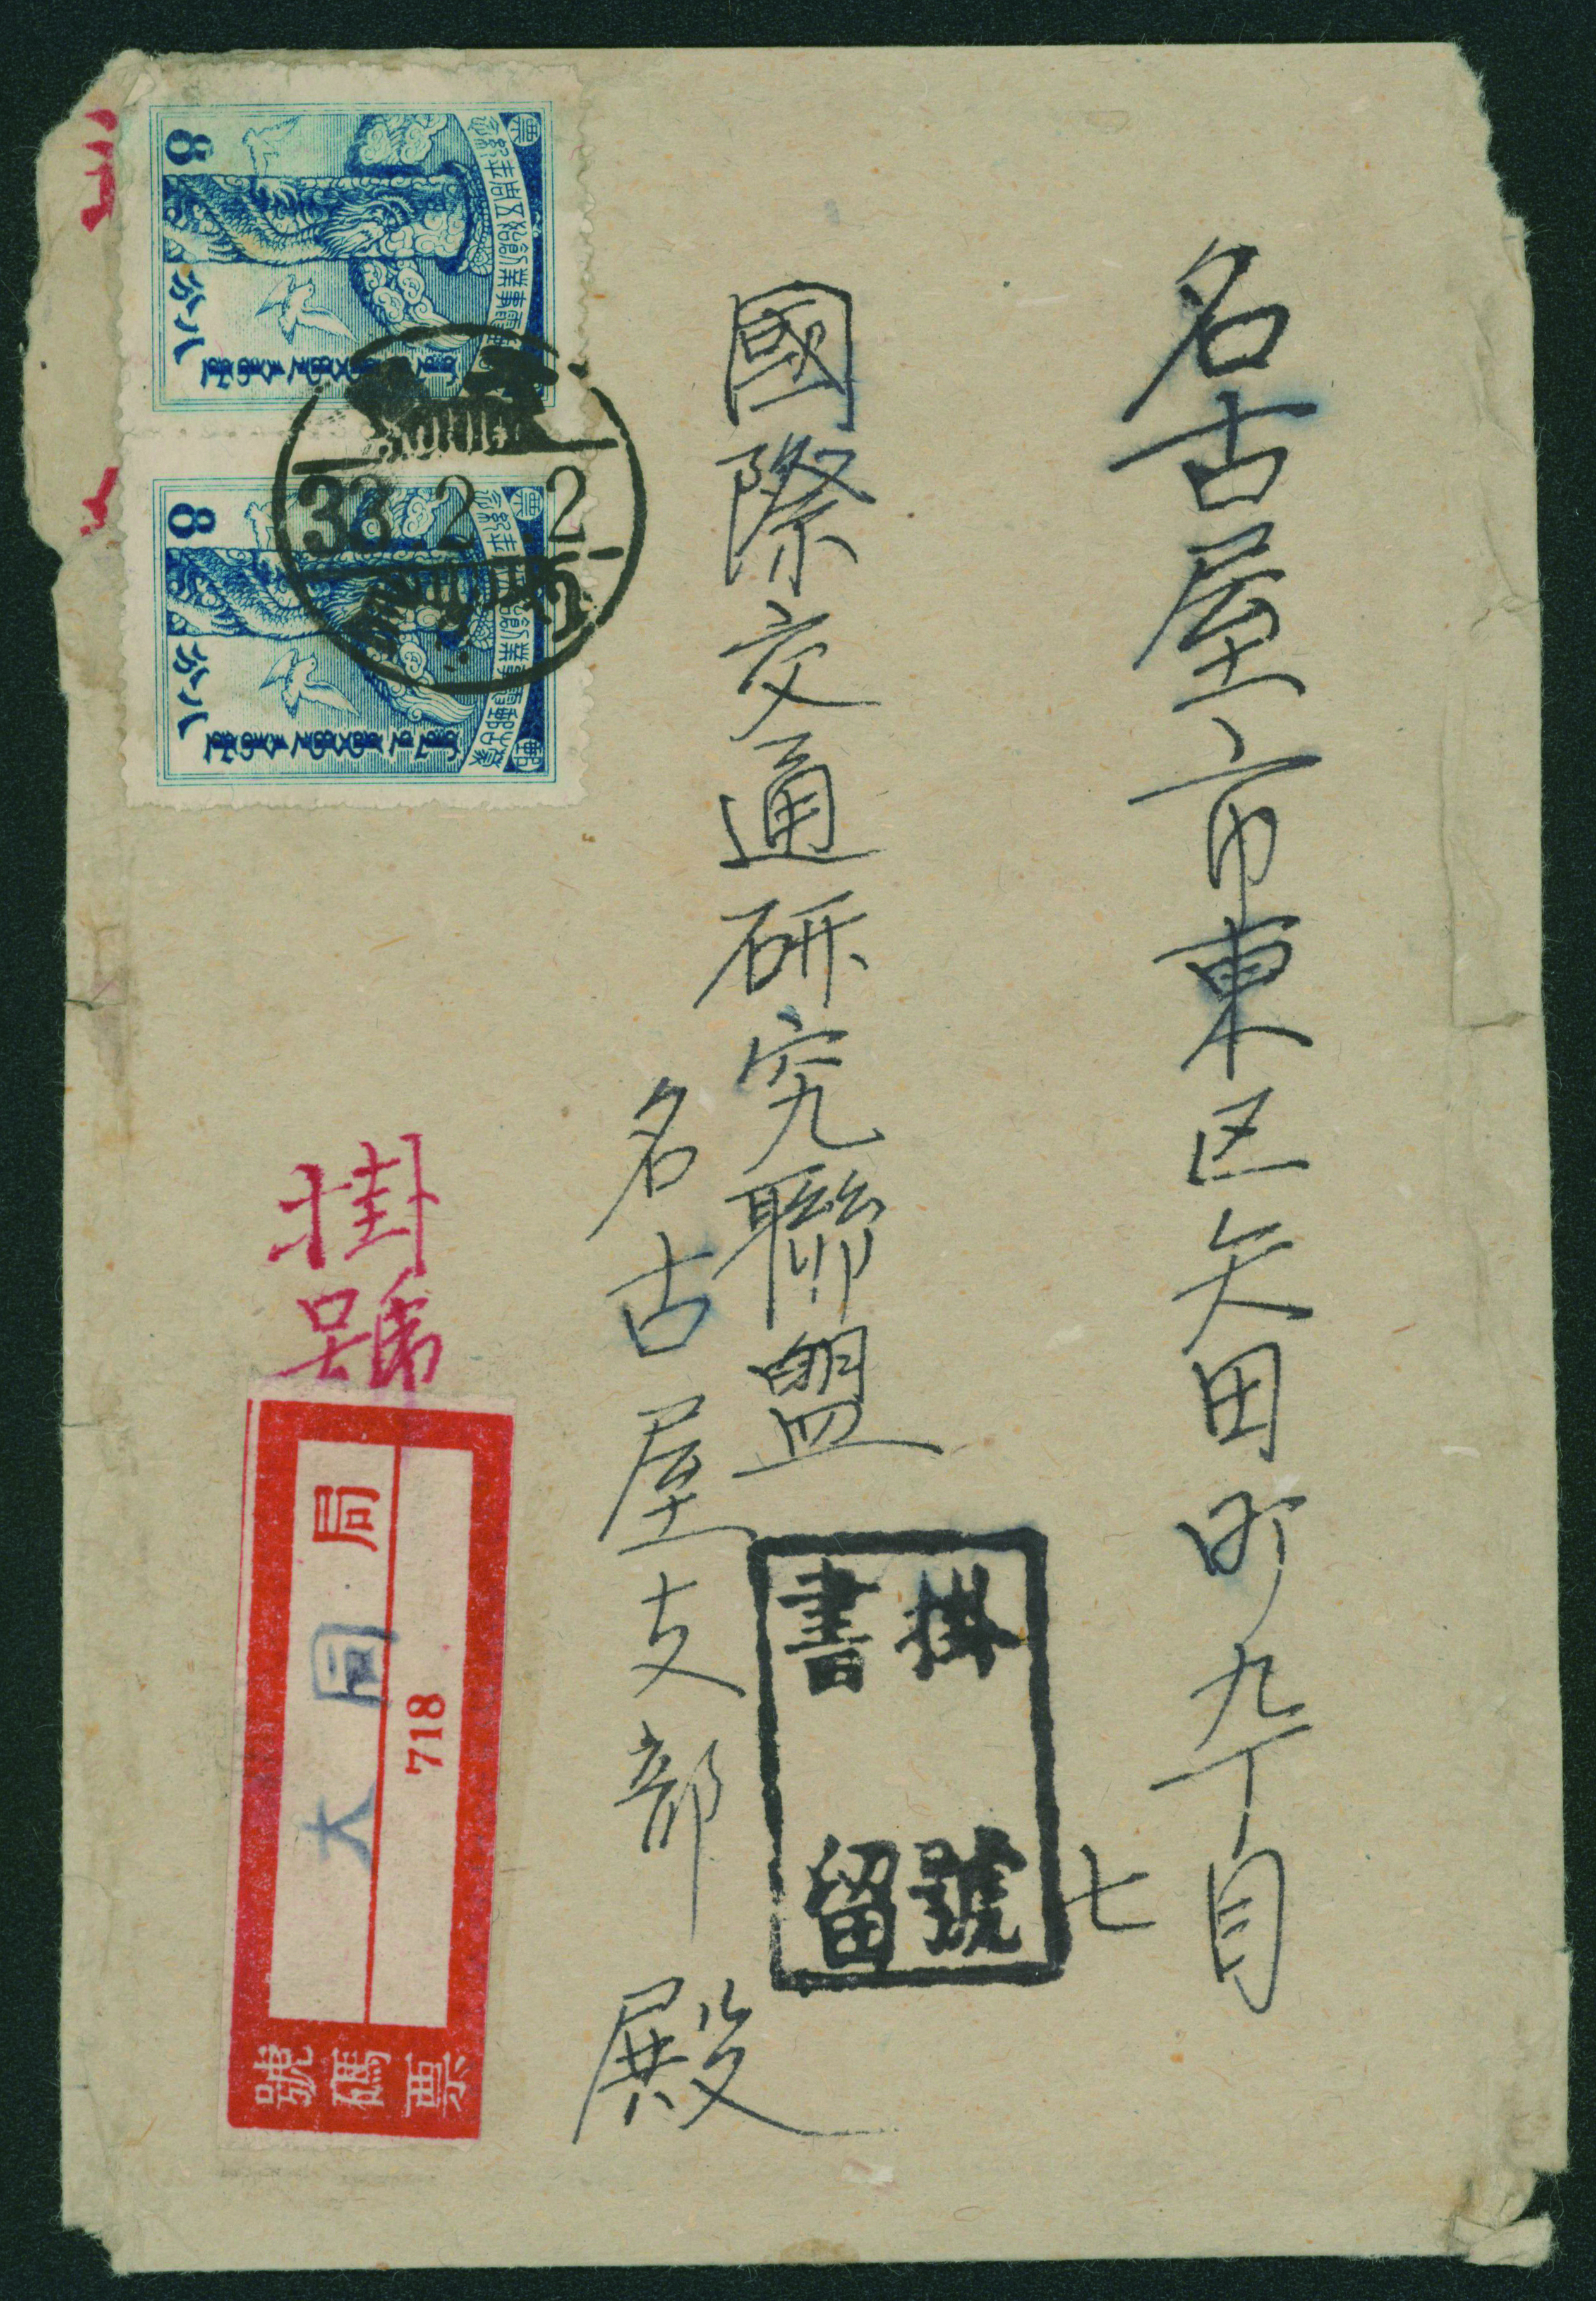 名古屋市東区矢田町九丁目
七
國際交通研究聯盟
名古屋支部 殿
掛號
書留
掛號
大同局
718
號碼票
33.2.2
8
八分
8
八分